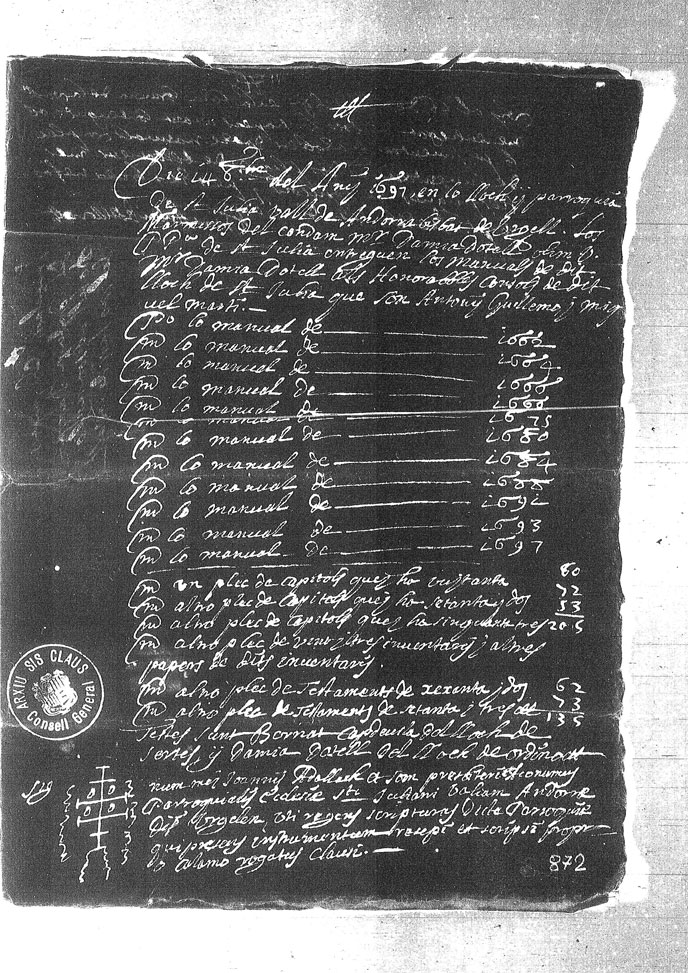 Die 14 del Any 1697 en lo lloch y parroquia
de st Julia vall de Andorra bisbat de Urgell. Los
Marmessos del condam mr Damia Dotell
de st Julia entreguen los manuals de dit
Mr Damia Dotell als Honorables consols de dit
lloch de st Julia que son Antony Guillemo y miq
uel marti.—
Po lo manual de 1662
Mº lo manual de 1664
Mº lo manual de 1666
Mº lo manual de
Mº lo manual de 1675
Mº lo manual de 1680
Mº lo manual de 1684
Mº lo manual de 1688
Mº lo manual de 1691
Mº lo manual de 1693
Mº lo manual de 1697
Mº un plec de capitols quey ha vuytanta 80
Mº altro plec de capitols quey ha setanta y dos 72
Mº altro plec de capitols quey ha singuanta tres 53
205
Mº altro plec de vint y tres inventaris y altres
papers de dits inventaris.
Mº altro plec de Testaments de xexanta y dos 62
Mº altro plec de Testaments de setanta y tres 73
135
Testes sunt Bernat del lloch de
y Damia Dotell del lloch de ordino
num mei Joannis presbiteri
Parroquialis Eclesie sti Juliani valium Andorre
regens scripturas dicte Parroquie
qui presens instrumentum recepi et scripsi propr
calamo rogatus clausi.—
Sig num
ARXIU SIS CLAUS
Consell General
872